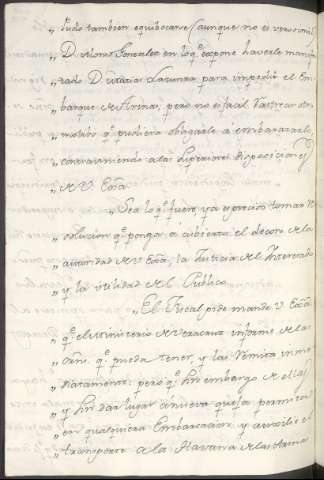 „ pudo tambien equibocarse (aunque no es verosimil)
„ Dn. Gonzalez en lo q.e expone haverle manifes
„ tado Dn. Lacunza para impedir el Em
„ barque de Arina, pero no es facil rastrear otro
„ motibo q.e pudiera obligarle á embarazarle,
„ contraviniendo a las Superiores disposiciones
„ de V. Exa.
„ Sea lo q.e fuere, ya es preciso tomar re
„ solucion q.e ponga a cubierto el decoro de la
„ autoridad de V. Exa, la Justicia del Interesado
„ y la utilidad del Publico.
„ El Fiscal pide mande V. Exa
„ q.e el Ministerio de Veracruz informe de las
„ q.e pueda tener, y las remita inme
„ diatamente: pero q.e sin embargo de ellas
„ y sin dar lugar a nueva quexa permita
„ en qualquiera Embarcacion y auxilie el
„ transporte a la Havana de las Arina